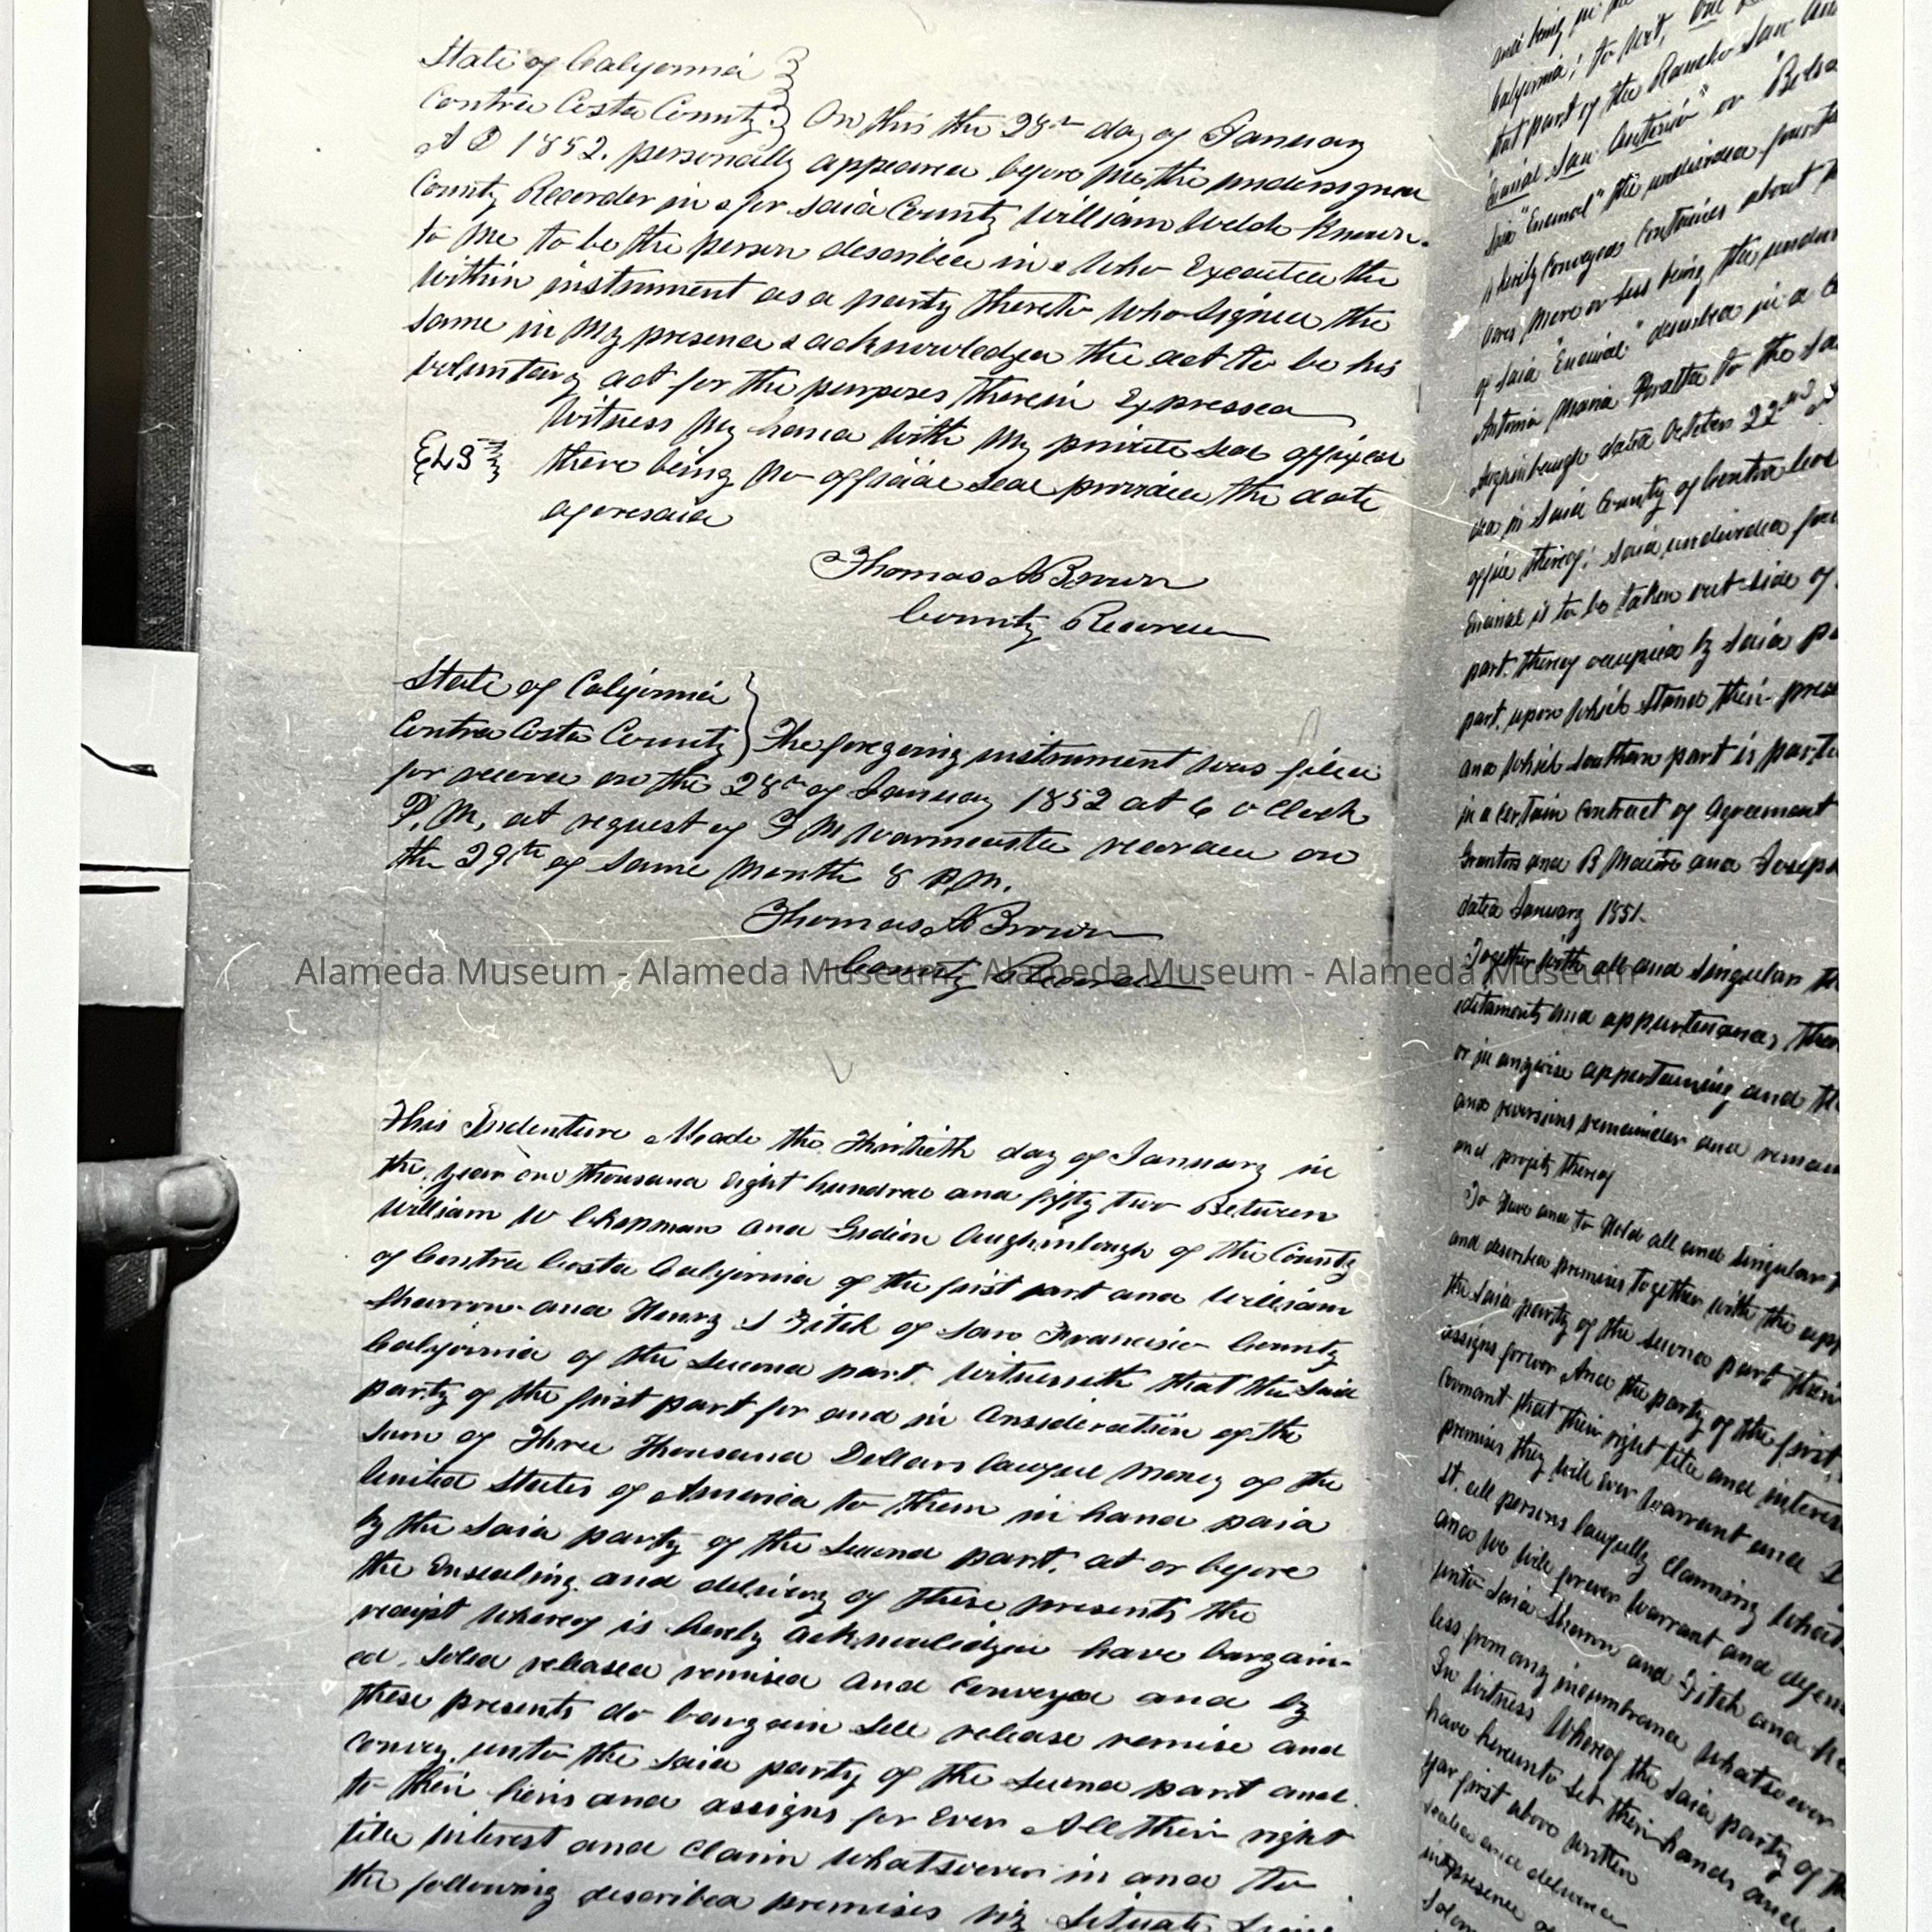 State of California
Contra Costa County On this the 28th day of January
A D 1852. personally appeared before me the undersigned
County Recorder in & for said County William Welch known
to me to be the person described in & who Executed the
within instrument as a party thereto who signed the
same in my presence & acknowledged the act to be his
voluntary act for the purposes therein Expressed
Witness my hand with my private seal affixed
there being no official seal provided the date
aforesaid
Thomas A Brown
County Recorder
State of California
Contra Costa County The foregoing instrument was filed
for record on the 28th of January 1852 at 6 o Clock
P.M. at request of F M Warmcastle recorded on
the 29th of same month 8 P.M.
Thomas A Brown
County Recorder
Alameda Museum - Alameda Museum - Alameda Museum - Alameda Museum
This Indenture Made the Thirtieth day of January in
the year one thousand eight hundred and fifty two Between
William W Chapman and Gideon Aughinbaugh of the County
of Contra Costa California of the first part and William
Sharron and Henry S Fitch of San Francisco County
California of the second part. Witnesseth that the said
party of the first part for and in Consideration of the
sum of Three Thousand Dollars lawful money of the
United States of America to them in hand paid
by the said party of the second part, at or before
the Ensealing and delivery of these presents the
receipt whereof is hereby acknowledged have bargain-
ed, Solea released remised and Conveyed and by
these presents do bargain sell release remise and
convey unto the said party of the second part and
to their heirs and assigns for Ever All their right
title interest and claim whatsoever in and to
the following described premises viz Situate
California; to wit,
that part of the Rancho San
Encinal San Antonio" or "Bolsa
said "Encinal" the undivided
hereby Conveyed Contains about
acres more or less being the
of said "Encinal" described in a
Antonio Maria Peralta to the
Aughinbaugh dated October 22nd
in said County of Contra
office thereof; said undivided
Encinal is to be taken out-side of
part thereof occupied by said
part, upon which stand their
and which Southern part is
in a certain contract of Agreement
Grantors and B Maitre and Joseph
dated January 1851.
Together with all and singular
ditaments and appurtenances
or in anywise appertaining and
and reversions remainder and
and profits thereof
To Have and to Hold all and singular
and described premises together with the
the said party of the second part their
assigns forever And the party of the first
Covenant that their right title and
premises they will Ever Warrant and
st. all persons lawfully claiming
and we will forever warrant and
unto said Sharron and Fitch and
less from any incumbrance whatsoever
In Witness Whereof the said party of
have hereunto set their hands and
year first above written
sealed and delivered
in presence of